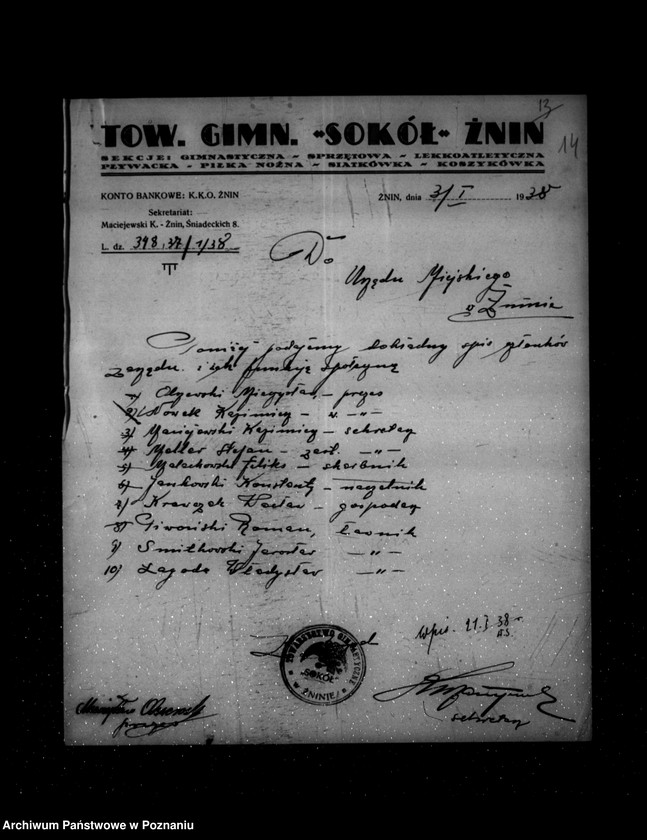 13
14
TOW. GIMN. «SOKÓŁ» ŻNIN
SEKCJE: GIMNASTYCZNA ~ SPRZĘTOWA ~ LEKKOATLETYCZNA
PŁYWACKA ~ PIŁKA NOŻNA ~ SIATKÓWKA ~ KOSZYKÓWKA
KONTO BANKOWE: K.K.O. ŻNIN
ŻNIN, dnia 3/I 1938
Sekretariat:
Maciejewski K. - Żnin, Śniadeckich 8.
L. dz. 398.37/1/38
Do
Urzędu Miejskiego
w Żninie
Poniżej podajemy dokładny spis członków
zarządu i ich funkcję społeczną
1) Olszewski Mieczysław, - prezes
2) Nowak Kazimierz - w. -"-
3) Maciejewski Kazimierz - sekretarz
4) Meller Stefan - zast. -"-
5) Małachowski Feliks - skarbnik
6) Jankowski Konstanty - naczelnik
7) Krawczak Wacław - gospodarz
8) Piwoński Roman, ławnik
9) Smiłkowski Jarosław -"-
10) Łagoda Władysław -"-
wpis. 21.I 38
TOWARZYSTWO GIMNASTYCZNE
"SOKÓŁ"
W ŻNINIE
prezes
sekretarz
Archiwum Państwowe w Poznaniu